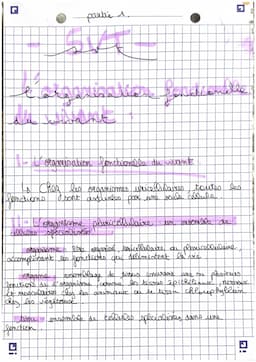 partie 1.
- SVT -
L'organisation fonctionnelle
du vivant
I - L'organisation fonctionnelle du vivant
Chez les organismes unicellulaires toutes les
fonctions sont assurées par une seule cellule.
1 - L'organisme pluricellulaire un ensemble de
cellules spécialisées
organisme : Etre organisé, unicellulaire ou pluricellulaire,
accomplissant les fonctions qui délimitent la vie
organe : assemblage de tissus concourt une ou plusieurs
fonctions de l'organisme comme les tissus épithéliaux, nerveux
et musculaires chez les animaux ou le tissu chlorophyllien
chez les végétaux.
tissu : ensemble de cellules spécialisées dans une
fonction.